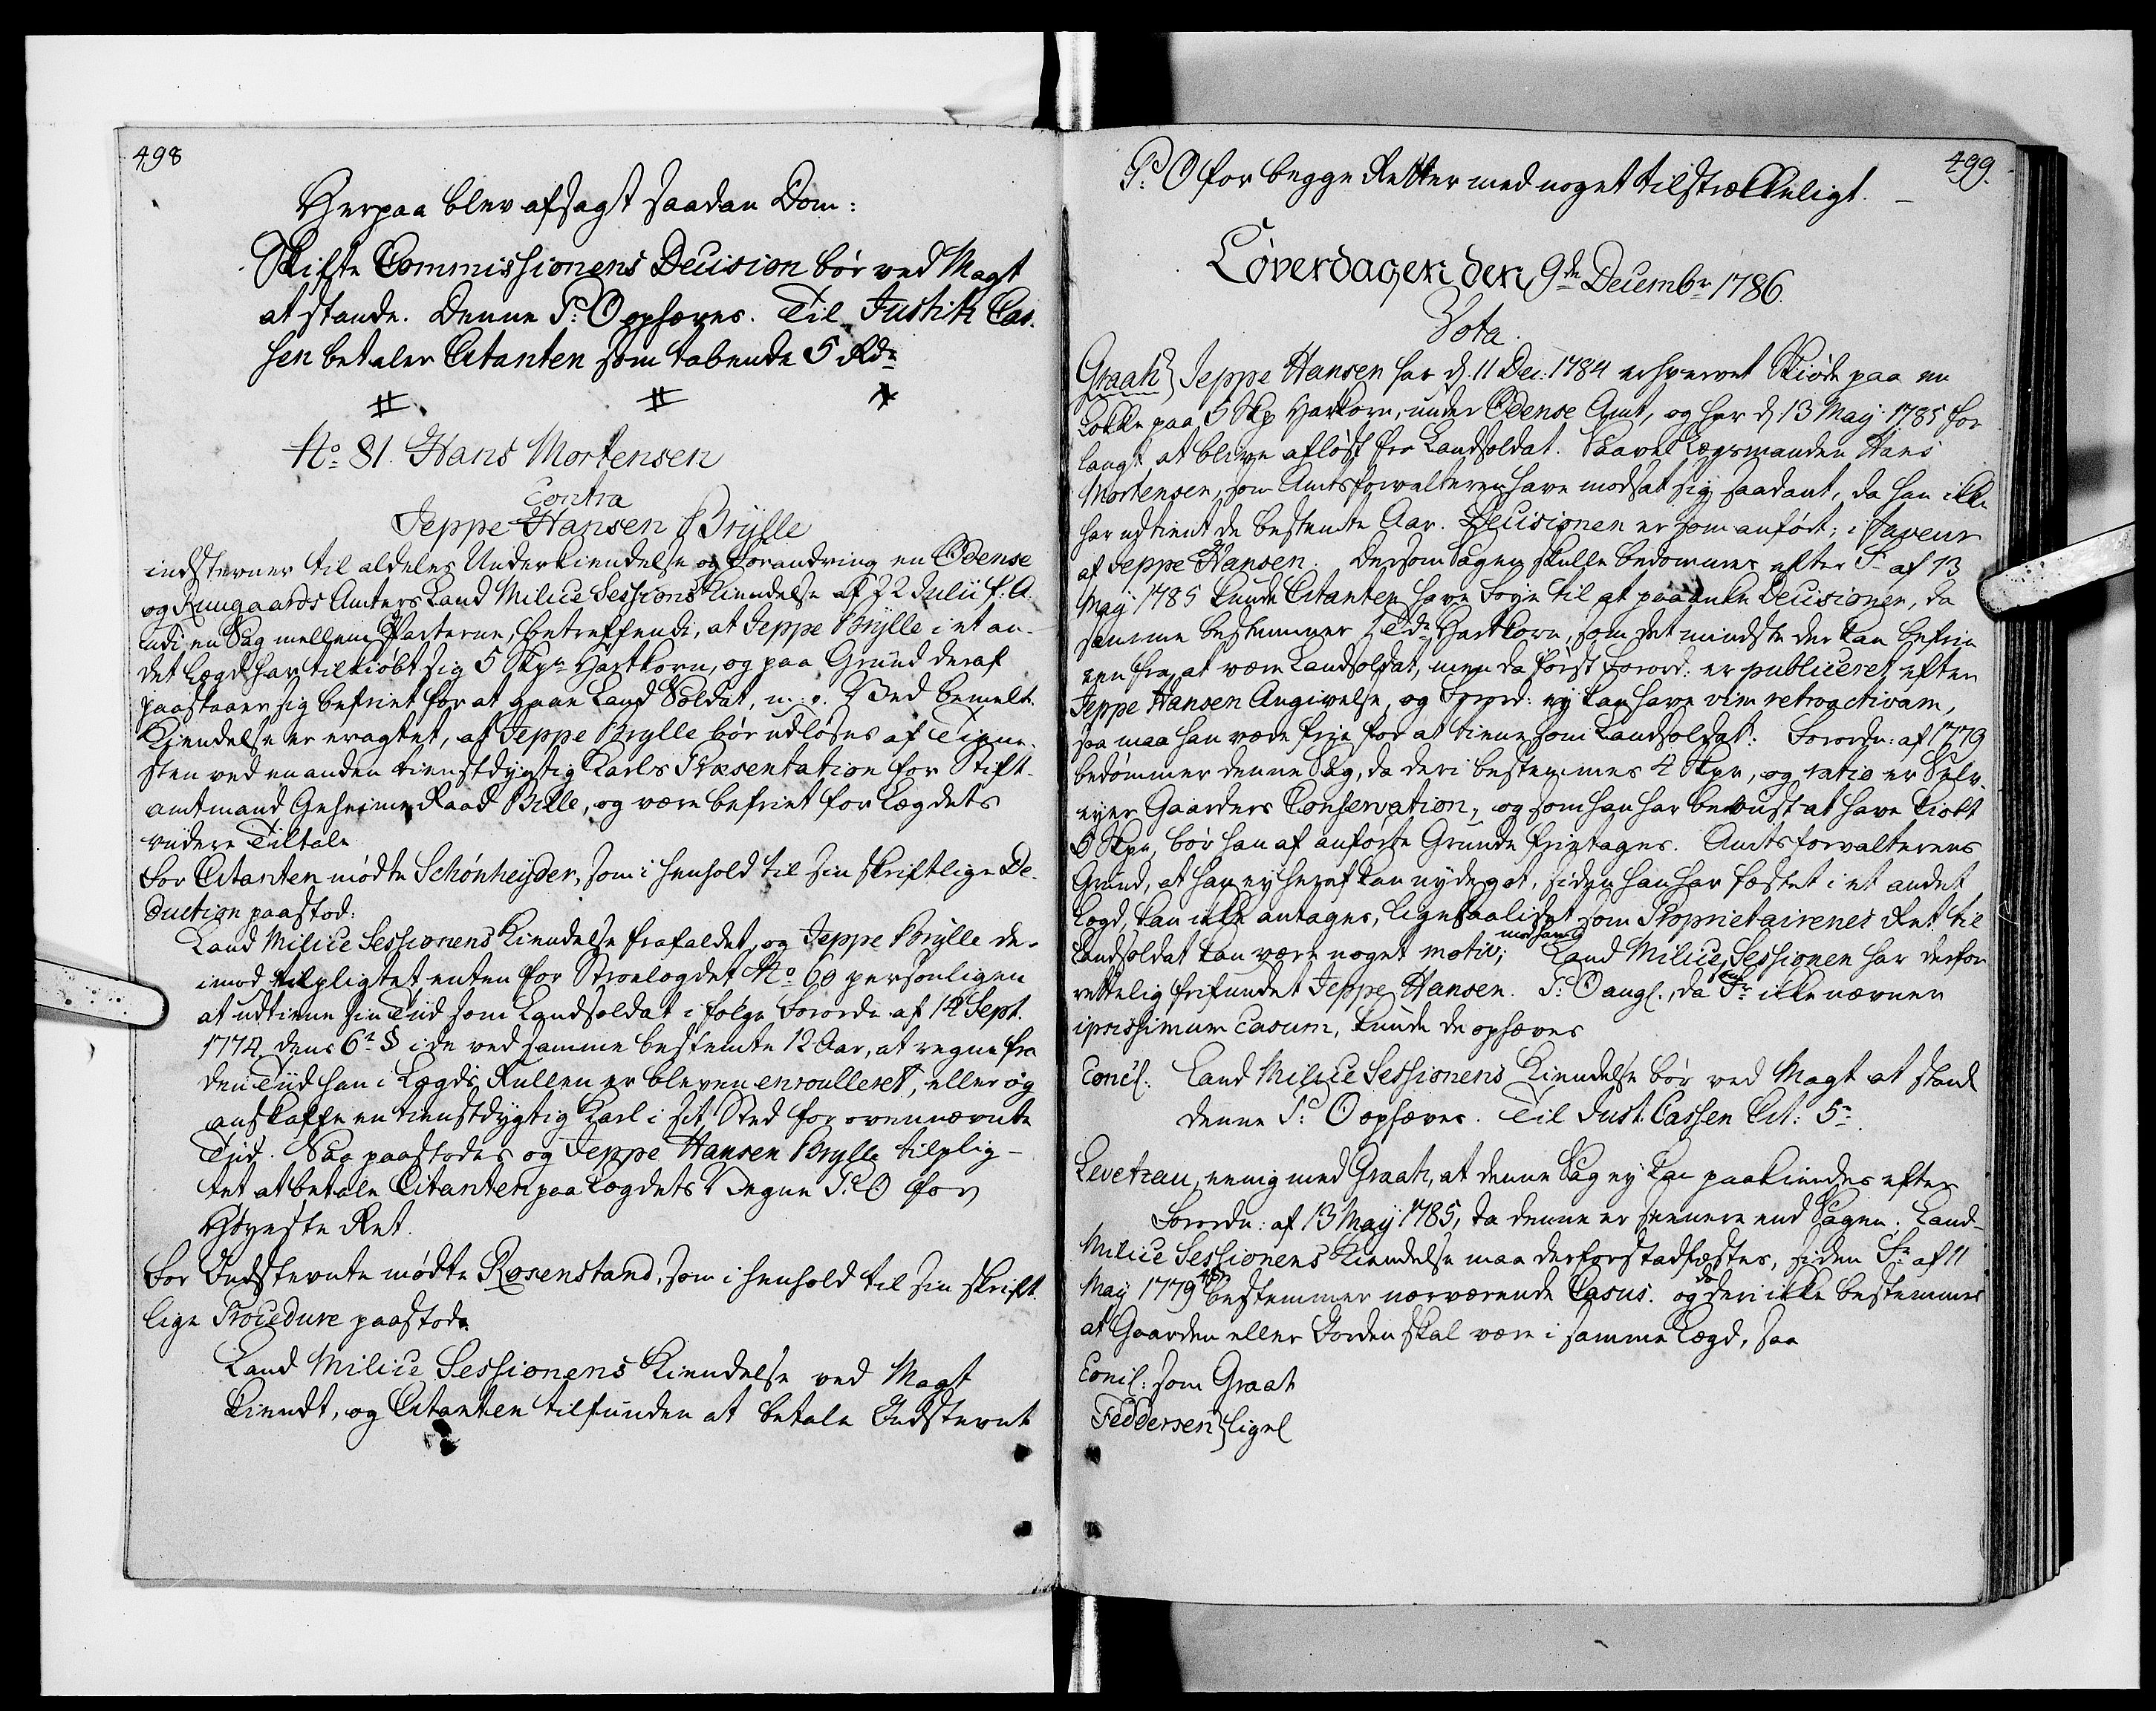 498
Herpaa blev afsagt saadan Dom:
Skifte Commissionens Decision bør ved Magt
at stande. Denne P: O ophæves. Til Justitz Cas-
sen betaler Citanten som tabende 5 Rdr
No 81. Hans Mortensen
Contra
Jeppe Hansen Brylle
indstevner til aldeles Underkiendelse og Forandring en Odense
og Ruugaards Amters Land Milice Sessions Kiendelse af 22 Julii f: A.
udi en Sag mellem Parterne, betreffende, at Jeppe Brylle i et an-
det Lægd har tilkiøbt sig 5 Skpr Hartkorn, og paa Grund deraf
paastaaer sig befriet for at gaae Land Soldat, m: v: Ved bemelte
Kiendelse er eragtet, at Jeppe Brylle bør udløses af Tiene-
sten ved en anden tienstdygtig Karls Præsentation for Stift-
amtmand Geheime Raad Bille, og være befriet for Lægdets
videre Tiltale
For Citanten mødte Schønheyder, som i Henhold til sin skriftlige De-
duction paastod:
Land Milice Sessionens Kiendelse frafaldet, og Jeppe Brylle de-
imod tilpligtet enten for Strøelægdet No 60 personligen
at udtiene sin Tiid som Landsoldat i følge Forordn: af 14 Sept.
1774 dens 6te § i de ved samme bestemte 12 Aar, at regne fra
den Tiid han i Lægds Rullen er bleven enroulleret, eller og
anskaffe en tienstdygtig Karl i sit Sted for ovennævnte
Tiid. Saa paastodes og Jeppe Hansen Brylle tilplig-
tet at betale Citanten paa Lægdets Vegne P: O for
Høyeste Ret.
For Indstevnte mødte Rosenstand, som i Henhold til sin skrift-
lige Procedure paastod
Land Milice Sessionens Kiendelse ved Magt
kiendt, og Citanten tilfunden at betale Indstevnte
499.
P: O for begge Retter med noget tilstrækkeligt.
Løverdagen den 9de Decembr 1786.
Vota.
Graah} Jeppe Hansen har d. 11 Dec: 1784 erhvervet Skiøde paa en
Lokke paa 5 Skp Hartkorn, under Odense Amt, og har d 13 May 1785 for-
langt at blive afløst fra Landsoldat. Saavel Lægsmanden Hans
Mortensen, som Amtsforvalteren have modsat sig saadant, da han ikke
har udtient de bestemte Aar. Decisionen er som anført; i Faveur
af Jeppe Hansen. Dersom Sagen skulle bedømmes efter Fr. af 13
May 1785 kunde Citanten have Føye til at paaanke Decisionen, da
samme bestemmer Tde Hartkorn, som det mindste der kan befrie
een fra at være Landsoldat, men da først Forord: er publiceret efter
Jeppe Hansen Angivelse, og Forord: ey kan have vim retroactivam,
saa maa han være frie for at tiene som Landsoldat. Forordn: af 1779
bedømmer denne Sag, da deri bestemmes 4 Skpr, og ratio er Selv-
eyer Gaarders Conservation, og som han har beviist at have kiøbt
5 Skpr, bør han af anførte Grunde frietages. Amtsforvalterens
Grund, at han ey heraf kan nyde got, siden han har fæstet i et andet
Lægd, kan ikke antages, ligesaalidet som Proprietairenes Ret til
Landsoldat kan være noget motiv; mod ham Land Milice Sessionen har derfor
rettelig frifundet Jeppe Hansen. P: O angl:, da Fr ikke nævner
ipsissimum Casum, kunde de ophæves
Concl: Land Milice Sessionens Kiendelse bør ved Magt at stande
denne P: O ophæves. Til Just. Cassen Cit: 5r.
Levetzau, eenig med Graah, at denne Sag ey kan paakiendes efter
Forordn: af 13 May 1785, da denne er seenere end Sagen. Land-
Milice Sessionens Kiendelse maa derfor stadfæstes, siden Fr. af 11
May 1779 bestemmer nærværende Casus. og da deri ikke bestemmes
at Gaarden eller Jorden skal være i samme Lægd, saa
Concl: som Graah
Feddersen} ligel